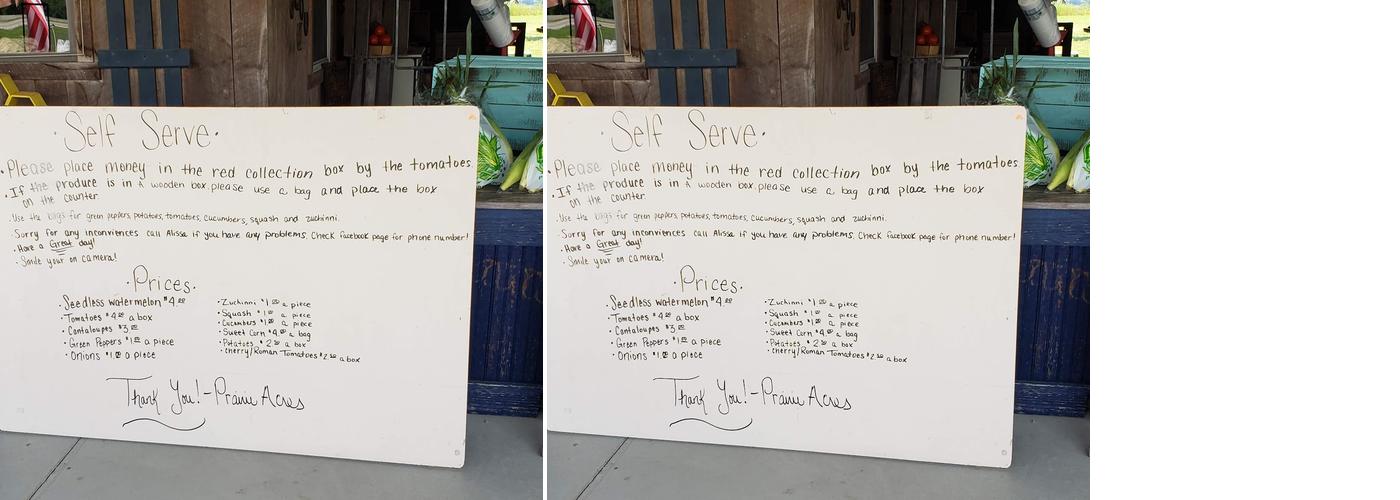 · Self Serve ·
· Please place money in the red collection box by the tomatoes.
· If the produce is in a wooden box, please use a bag and place the box
on the counter.
· Use the bags for green peppers, potatoes, tomatoes, cucumbers, squash and zuchinni.
· Sorry for any inconviences call Alissa if you have any problems. Check facebook page for phone number!
· Have a Great day!
· Smile your on camera!
· Prices ·
· Seedless watermelon $4.00
· Tomatoes $4.00 a box
· Cantaloupes $3.00
· Green Peppers $1.00 a piece
· Onions $1.00 a piece
· Zuchinni $1.00 a piece
· Squash $1.00 a piece
· Cucumbers $1.00 a piece
· Sweet Corn $4.00 a bag
· Potatoes $2.50 a box
· Cherry/Roman Tomatoes $2.50 a box
Thank You! - Prairie Acres
· Self Serve ·
· Please place money in the red collection box by the tomatoes.
· If the produce is in a wooden box, please use a bag and place the box
on the counter.
· Use the bags for green peppers, potatoes, tomatoes, cucumbers, squash and zuchinni.
· Sorry for any inconviences call Alissa if you have any problems. Check facebook page for phone number!
· Have a Great day!
· Smile your on camera!
· Prices ·
· Seedless watermelon $4.00
· Tomatoes $4.00 a box
· Cantaloupes $3.00
· Green Peppers $1.00 a piece
· Onions $1.00 a piece
· Zuchinni $1.00 a piece
· Squash $1.00 a piece
· Cucumbers $1.00 a piece
· Sweet Corn $4.00 a bag
· Potatoes $2.50 a box
· Cherry/Roman Tomatoes $2.50 a box
Thank You! - Prairie Acres